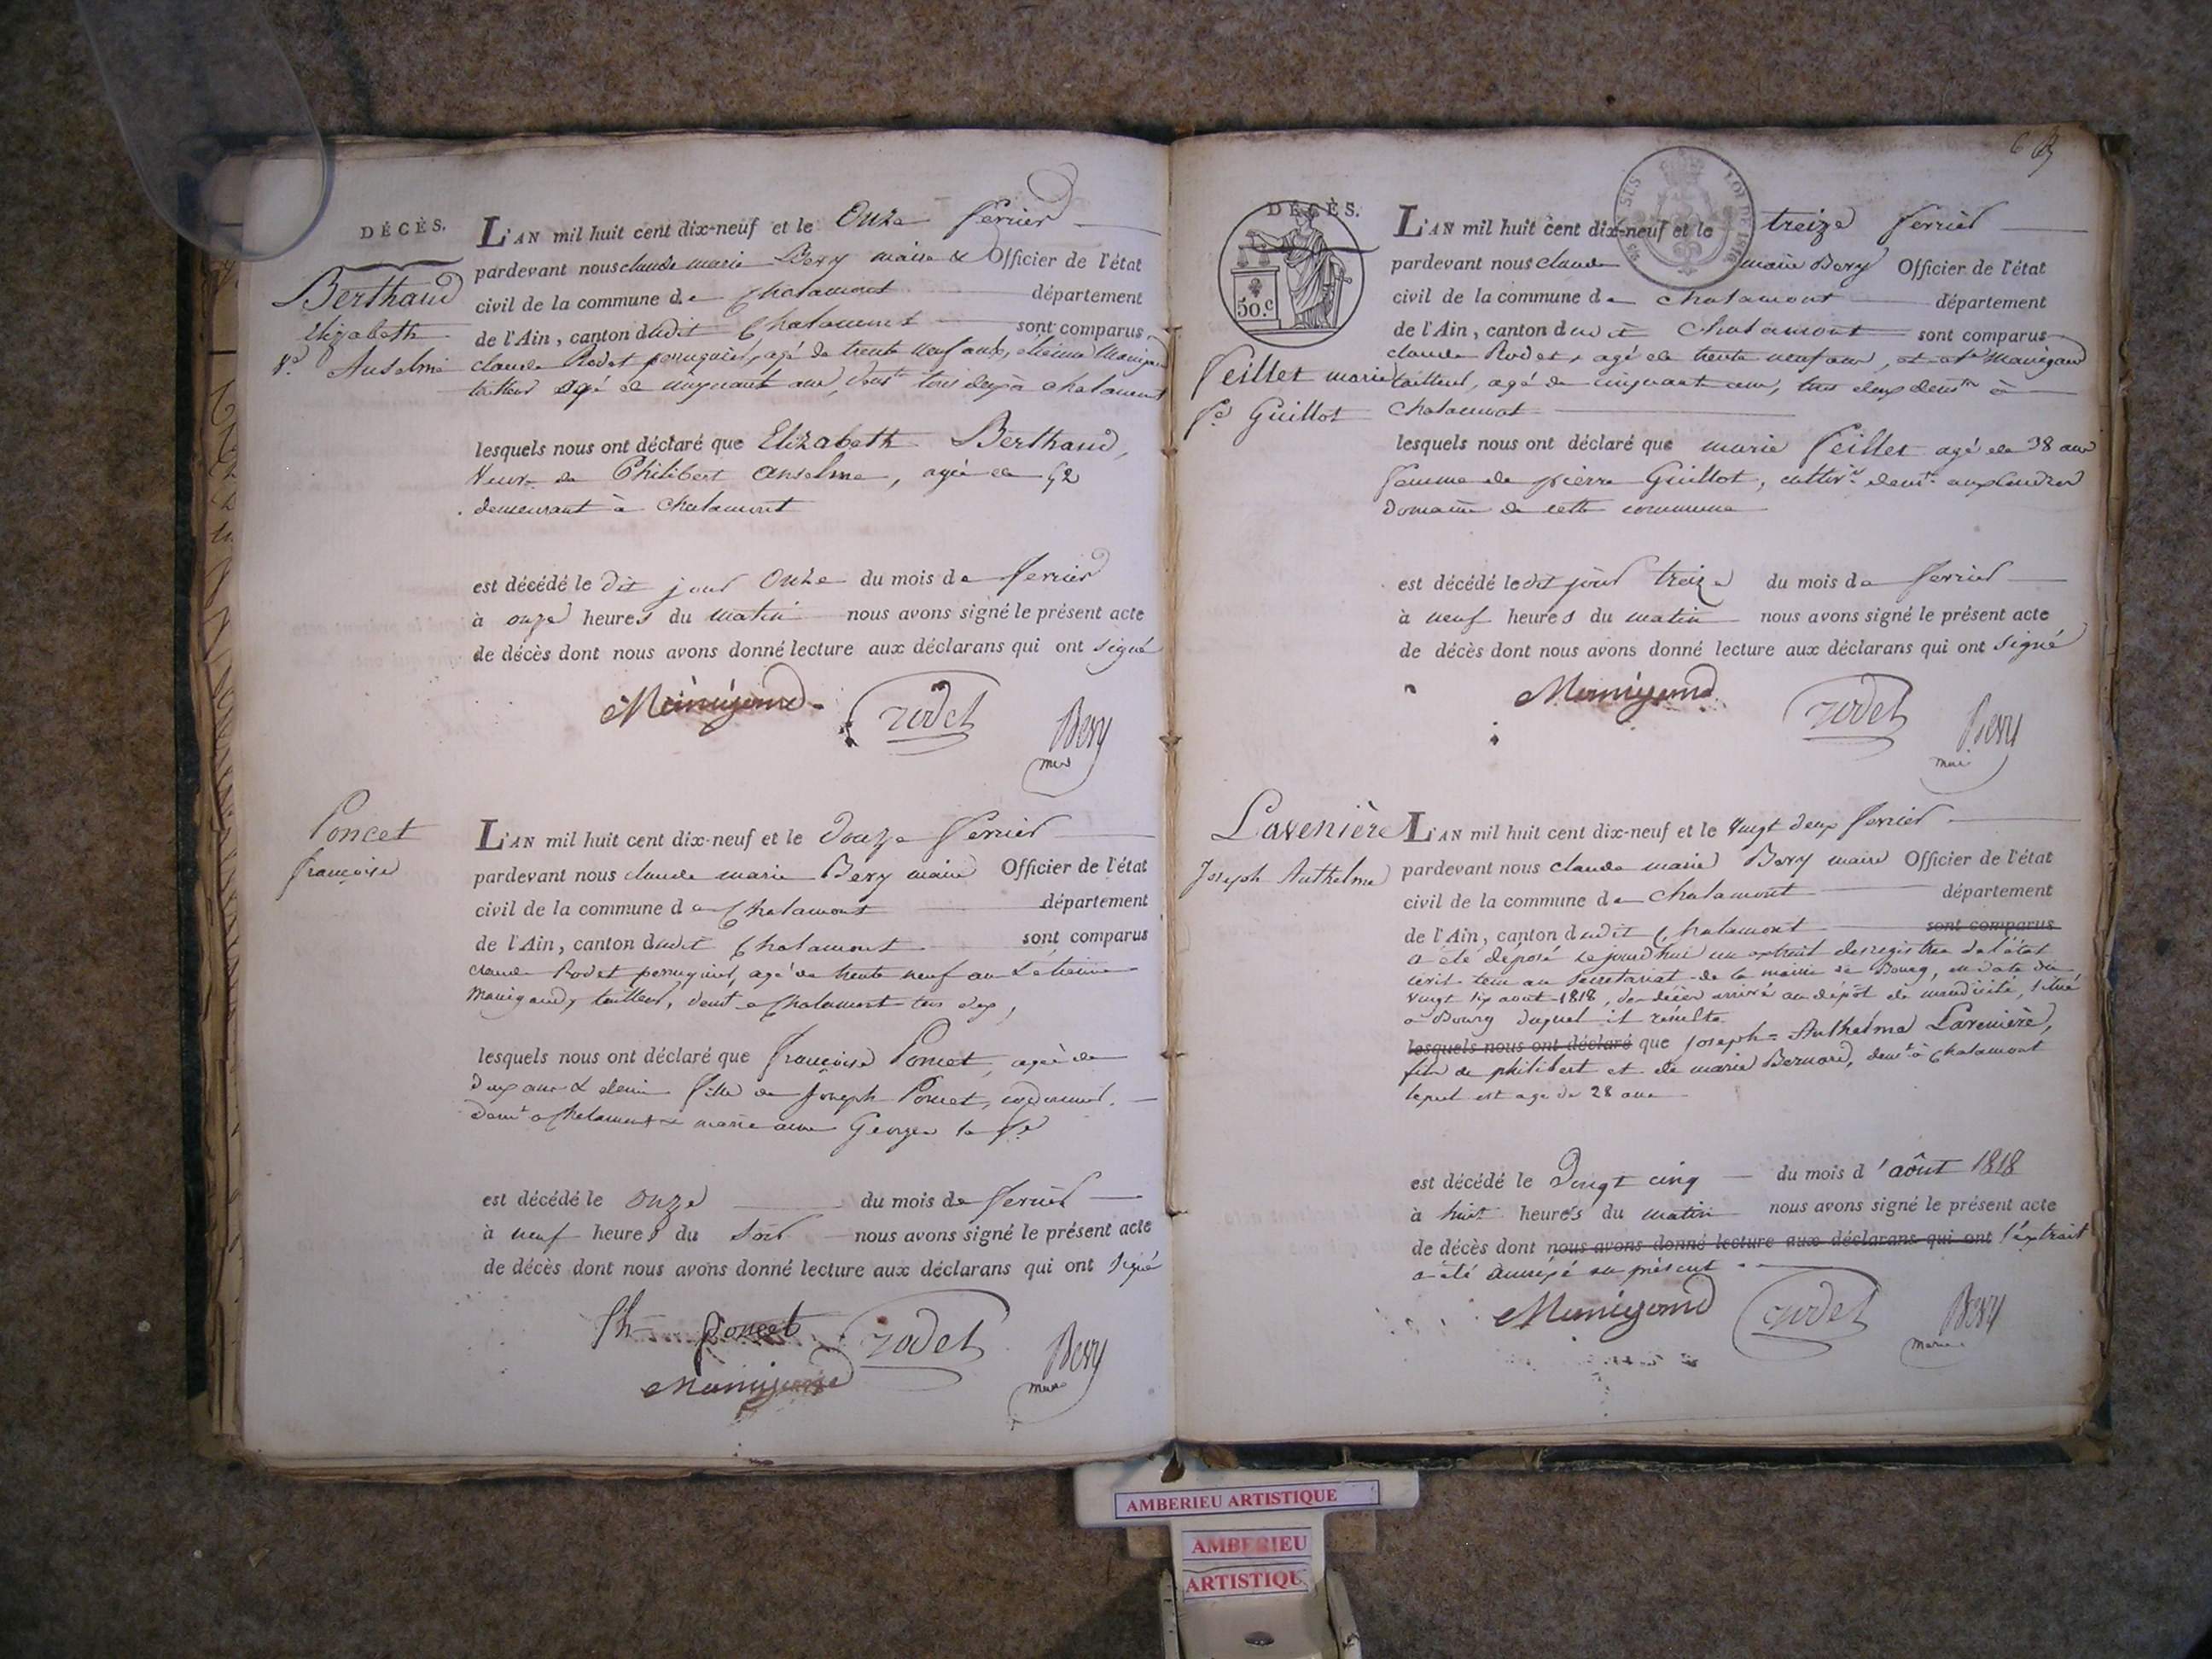 DÉCÈS.
Berthaud
Elizabeth
Ve. Anselme
L'AN mil huit cent dix-neuf et le Onze fevrier
pardevant nous claude marie Bery maire & Officier de l'état
civil de la commune de Chalamont département
de l'Ain, canton dudit Chalamont sont comparus
claude Rodet perruquier, agé de trente neuf ans, etienne Manigand
tailleur agé de cinquante ans, demts tous deux à chalamont
lesquels nous ont déclaré que Elizabeth Berthaud,
Veuve de Philibert Anselme, agée de
demeurant à Chalamont
est décédé le dit jour Onze du mois de fevrier
à onze heures du matin nous avons signé le présent acte
de décès dont nous avons donné lecture aux déclarans qui ont signé
Manigand rodet Bery
mre
Poncet
françoise
L'AN mil huit cent dix-neuf et le douze fevrier
pardevant nous claude marie Bery maire Officier de l'état
civil de la commune de Chalamont département
de l'Ain, canton dudit Chalamont sont comparus
claude Rodet perruquier, agé de trente neuf ans & etienne
Manigand, tailleur, demt a Chalamont tous deux,
lesquels nous ont déclaré que françoise Poncet, agée de
deux ans & demi fille de Joseph Poncet, cordonnier,
demt a Chalamont & marie anne Georges sa fe
est décédé le onze du mois de fevrier
à neuf heures du soir nous avons signé le présent acte
de décès dont nous avons donné lecture aux déclarans qui ont signé
Jh poncet rodet Bery
Manigand mre
DÉCÈS.
50.c
SUS LOI DE 1816
Peillet marie
fe Guillot
L'AN mil huit cent dix-neuf et le treize fevrier
pardevant nous claude marie Bery Officier de l'état
civil de la commune de Chalamont département
de l'Ain, canton dudit Chalamont sont comparus
claude Rodet, agé de trente neuf ans, et et Manigand
tailleur, agé de cinquante ans, tous deux demts à
Chalamont
lesquels nous ont déclaré que marie Peillet agé de 38 ans
femme de pierre Guillot, cultivr demt
domaine de cette commune
est décédé le dit jour treize du mois de fevrier
à neuf heures du matin nous avons signé le présent acte
de décès dont nous avons donné lecture aux déclarans qui ont signé
Manigand rodet Bery
mre
Lavenière
Joseph Anthelme
L'AN mil huit cent dix-neuf et le Vingt deux fevrier
pardevant nous claude marie Bery maire Officier de l'état
civil de la commune de Chalamont département
de l'Ain, canton dudit Chalamont sont comparus
a été déposé ce jourd'hui un extrait des registres de l'état
civil tenu au secretariat de la mairie de Bourg, en date du
vingt six aout 1818, de décès arrivé au dépôt de mendicité, situé
a Bourg duquel il résulte
lesquels nous ont déclaré que joseph=Anthelme Lavenière,
fils de philibert et de marie Bernard, demt à Chalamont
lequel est age de 28 ans
est décédé le Vingt cinq du mois d'août 1818
à huit heures du matin nous avons signé le présent acte
de décès dont nous avons donné lecture aux déclarans qui ont l'extrait
a été annexé au présent
Manigand rodet Bery
maire
AMBERIEU ARTISTIQUE
AMBERIEU
ARTISTIQU